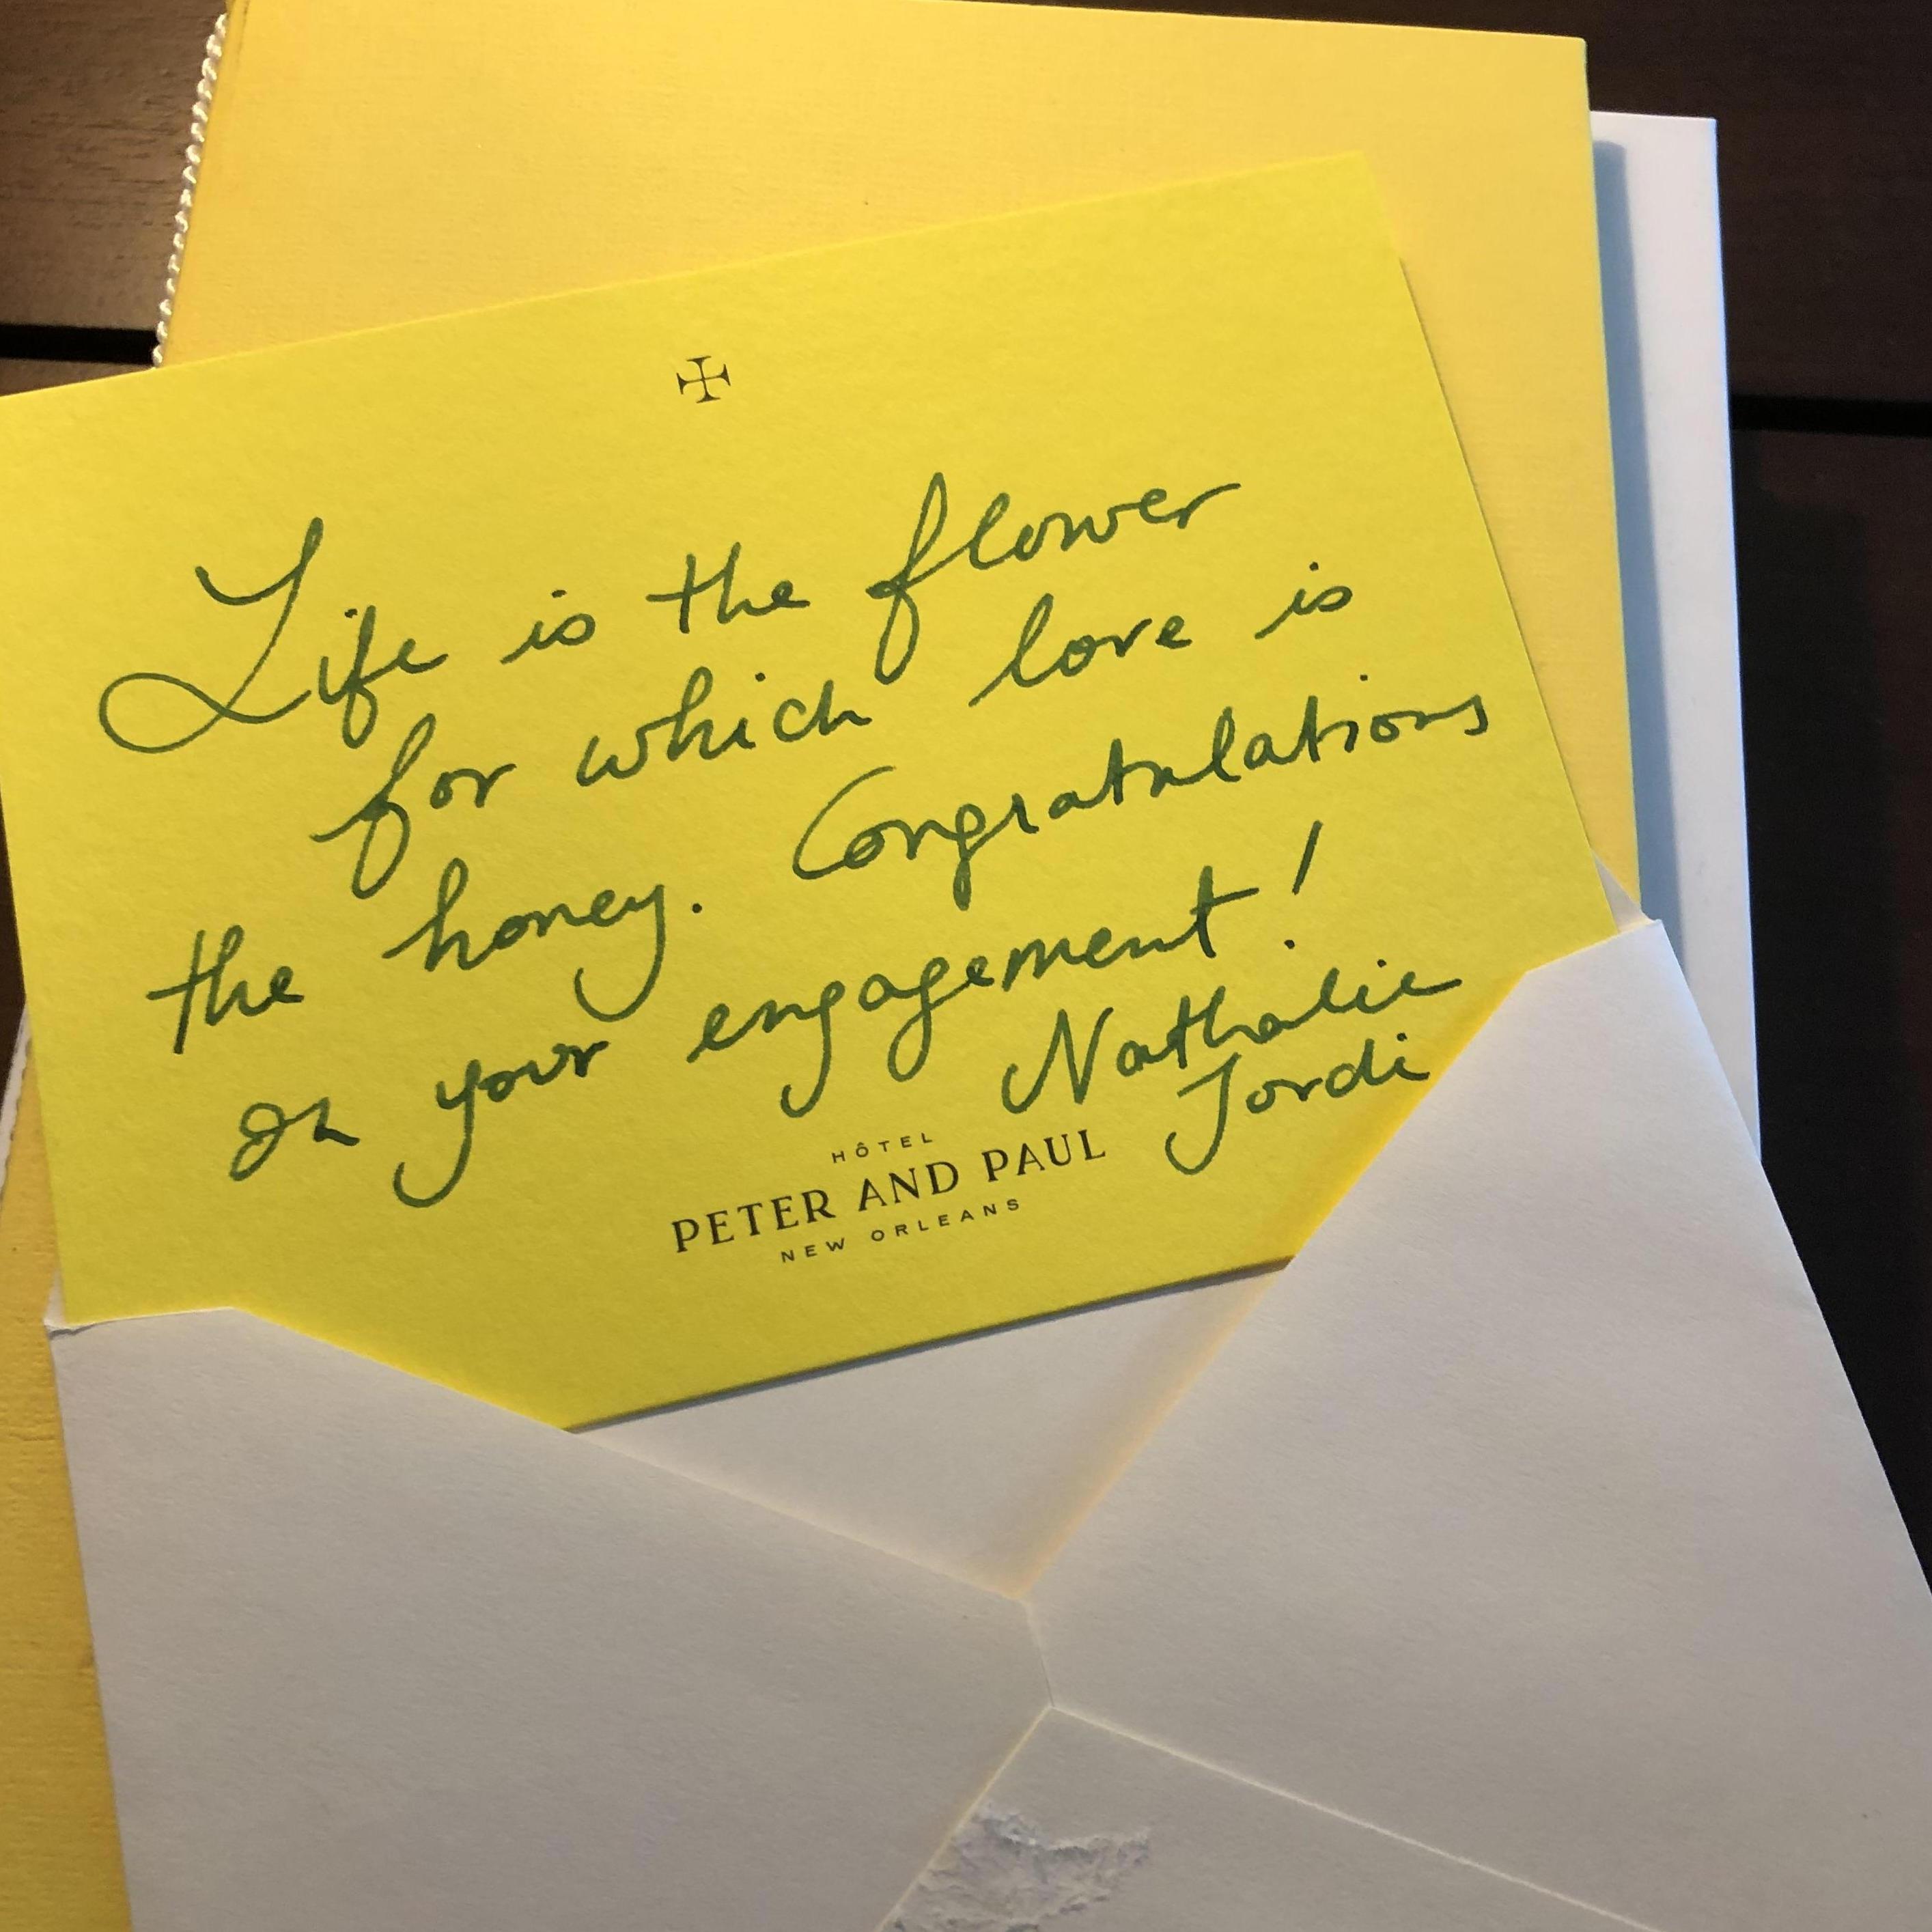 Life is the flower
for which love is
the honey. Congratulations
on your engagement!
Nathalie
Jordi
HÔTEL
PETER AND PAUL
NEW ORLEANS